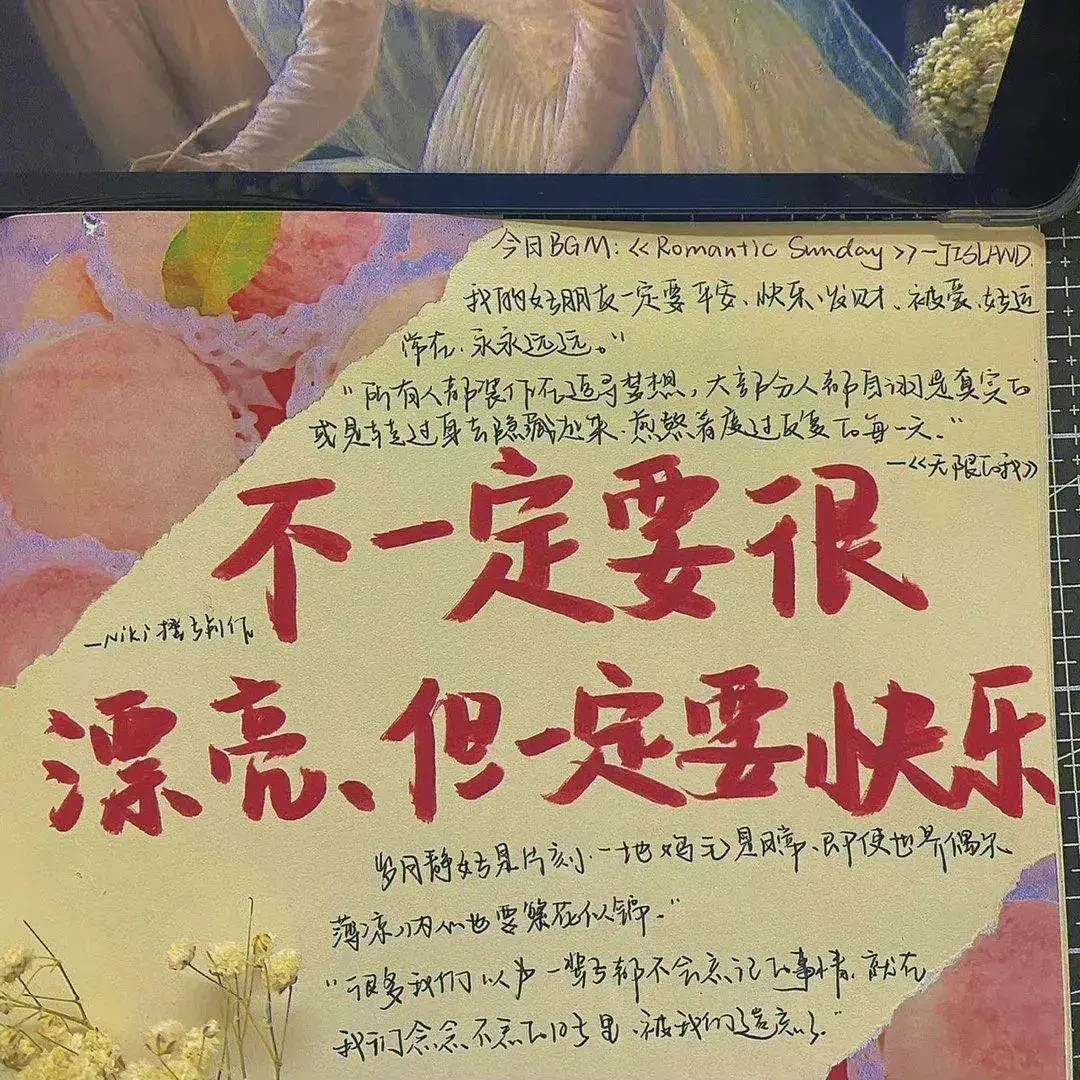 今日BGM:<<Romantic Sunday>>—JISLAND
我的好朋友一定要平安、快乐、发财、被爱、好运
常在、永永远远。"
"所有人都装作在追寻梦想，大部分人都自诩是真实的
或是转过身去隐藏起来、煎熬着度过反复的每一天。"
—<<无限的我》
不一定要很
—Niki 手制作
漂亮、但一定要快乐
岁月静好是片刻、一地鸡毛是日常、即使世界偶尔
薄凉、内心也要繁花似锦。"
"很多我们以为一辈子都不会忘记的事情、就在
我们念念不忘的日子里、被我们遗忘了。"